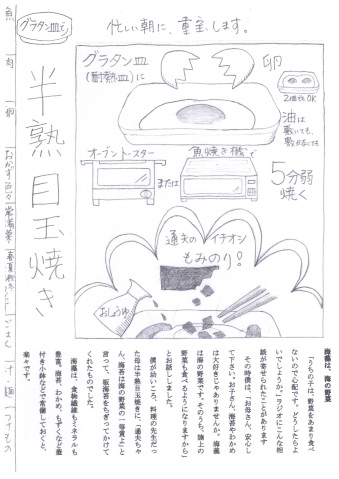 グラタン皿で
忙しい朝に、重宝します。
半熟目玉焼き
グラタン皿
(耐熱皿)に
卵
2個でもOK
油は
敷いても、
敷かなくても
オーブントースター
または
魚焼き機で
5分弱
焼く
道夫のイチオシ
もみのり!
おしょうゆ
海藻は、海の野菜
「うちの子は、野菜をあまり食べ
ないので心配です。どうしたらよ
いでしょうか」ラジオにこんな相
談が寄せられたことがあります
その時僕は、「お母さん、安心し
て下さい。お子さん、海苔やわかめ
は大好きじゃありませんか。海藻
は海の野菜です。そのうち、陸上の
野菜も食べるようになりますから」
とお話しました。
僕が幼いころ、料理の先生だっ
た母は半熟目玉焼きに「道夫ちゃ
ん、海苔は海の野菜の一等賞よ」と
言って、板海苔をちぎってかけて
くれたものでした。
海藻は、食物繊維もミネラルも
豊富。海苔、わかめ、もずくなど蓋
付き小鉢などで常備しておくと、
楽々です。
魚
肉
卵
おかず色々
常備菜
ごはん
汁
麺